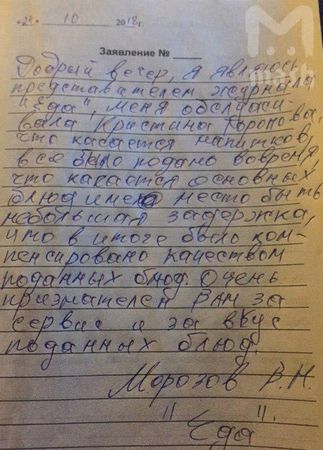 "29" 10 2012 г.
Заявление № ____
Добрый вечер, я являюсь
представателем журнала
"Еда", меня обслужи-
вала Кристина Торопова,
что касается напитков,
все было подано вовремя
что касается основных
блюд имела место быть
небольшая задержка,
что в итоге было ком-
пенсировано качеством
поданных блюд. Очень
признателен Вам за
сервис и за вкус
поданных блюд.
Морозов В.Н.
"Еда".